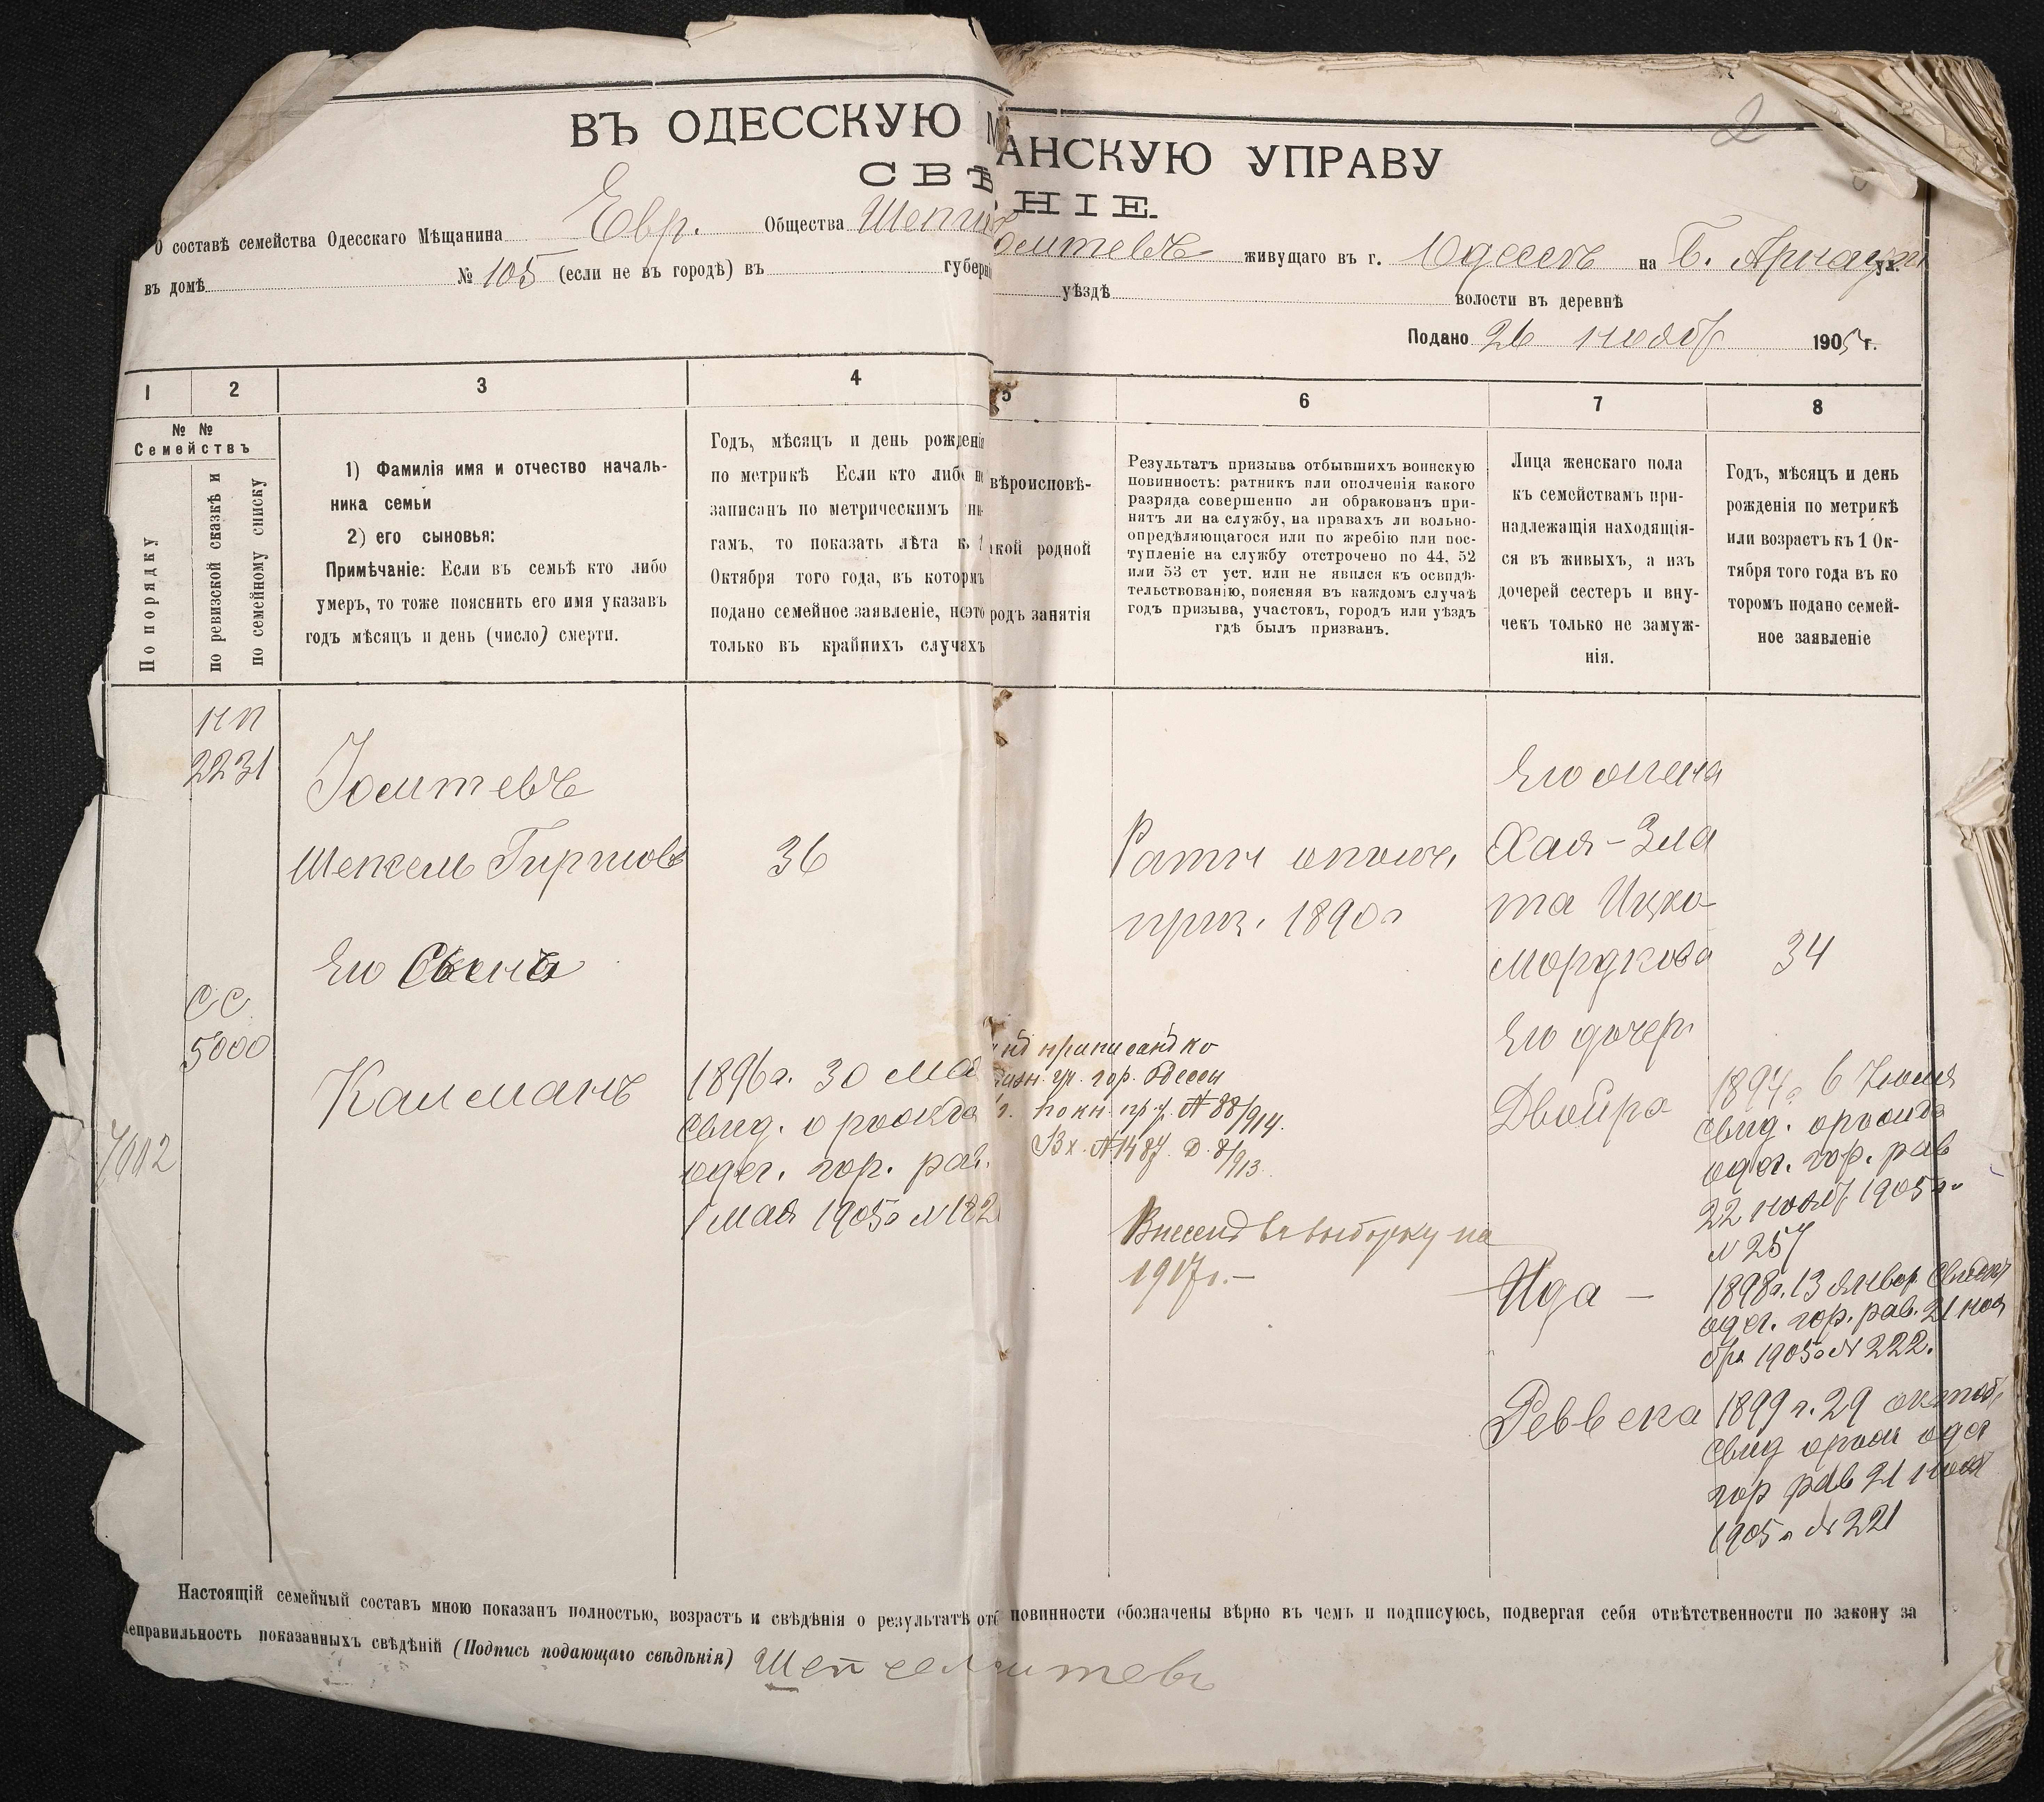 2
ВЪ ОДЕССКУЮ М АНСКУЮ УПРАВУ
СВѢ НІЕ.
О составѣ семейства Одесскаго Мѣщанина Евр. Общества живущаго въ г. Одессѣ на Б. Арнаут ул.
въ домѣ № 105 (если не въ городѣ) въ губерні уѣздѣ волости въ деревнѣ
Подано 26 нояб 1905 г.
1 2 3 4 5 6 7 8
№ №
Семействъ
По порядку
по ревизской сказкѣ и
по семейному списку
1) Фамилія имя и отчество началь-
ника семьи
2) его сыновья:
Примѣчаніе: Если въ семьѣ кто либо
умеръ, то тоже пояснить его имя указавъ
годъ мѣсяцъ и день (число) смерти.
Годъ, мѣсяцъ и день рожденія
по метрикѣ Если кто либо не
записанъ по метрическимъ кни-
гамъ, то показать лѣта къ 1
Октября того года, въ которомъ
подано семейное заявленіе, но это
только въ крайнихъ случаяхъ
вѣроисповѣ-
кой родной
родъ занятія
Результатъ призыва отбывшихъ воинскую
повинность: ратникъ или ополченія какого
разряда совершенно ли обракованъ при-
нятъ ли на службу, на правахъ ли вольно-
опредѣляющагося или по жребію или пос-
тупленіе на службу отстрочено по 44, 52
или 53 ст уст. или не явился къ освидѣ-
тельствованію, поясняя въ каждомъ случаѣ
годъ призыва, участокъ, городъ или уѣздъ
гдѣ былъ призванъ.
Лица женскаго пола
къ семействамъ при-
надлежащія находящія-
ся въ живыхъ, а изъ
дочерей сестеръ и вну-
чекъ только не замуж-
нія.
Годъ, мѣсяцъ и день
рожденія по метрикѣ
или возрастъ къ 1 Ок-
тября того года въ ко
торомъ подано семей-
ное заявленіе
нп
2231
Шепсель Гиршовъ
36
Его Сынъ
СС
5000
7002
Калманъ
1896 г. 30 мая
свид. о рожд
одес. гор. рав.
1 мая 1905 г №
приписанъ ко
гор. Одессы
№ 88/914.
Вх. № 1487 Д. 8/913
Ратн ополч.
приз. 1890 г
Внесенъ въ выборку на
1917 г. —
Его жена
Хая-Зла
та Ицко
Мордкова
34
Его дочери
Двойра
1894 г 6 Іюля
свид. о рожд
одес. гор. рав
22 нояб 1905 г.
№ 257
Ида —
1898 г. 13 январ. Свидет
одес. гор. рав. 21 ноя
бря 1905 г № 222.
Реввека
1899 г. 29 октяб
свид о рож одес
гор рав 21 нояб
1905 г № 221
Настоящій семейный составъ мною показанъ полностью, возрастъ и свѣдѣнія о результатѣ отб повинности обозначены вѣрно въ чемъ и подписуюсь, подвергая себя отвѣтственности по закону за
неправильность показанныхъ свѣдѣній (Подпись подающаго свѣдѣнія)